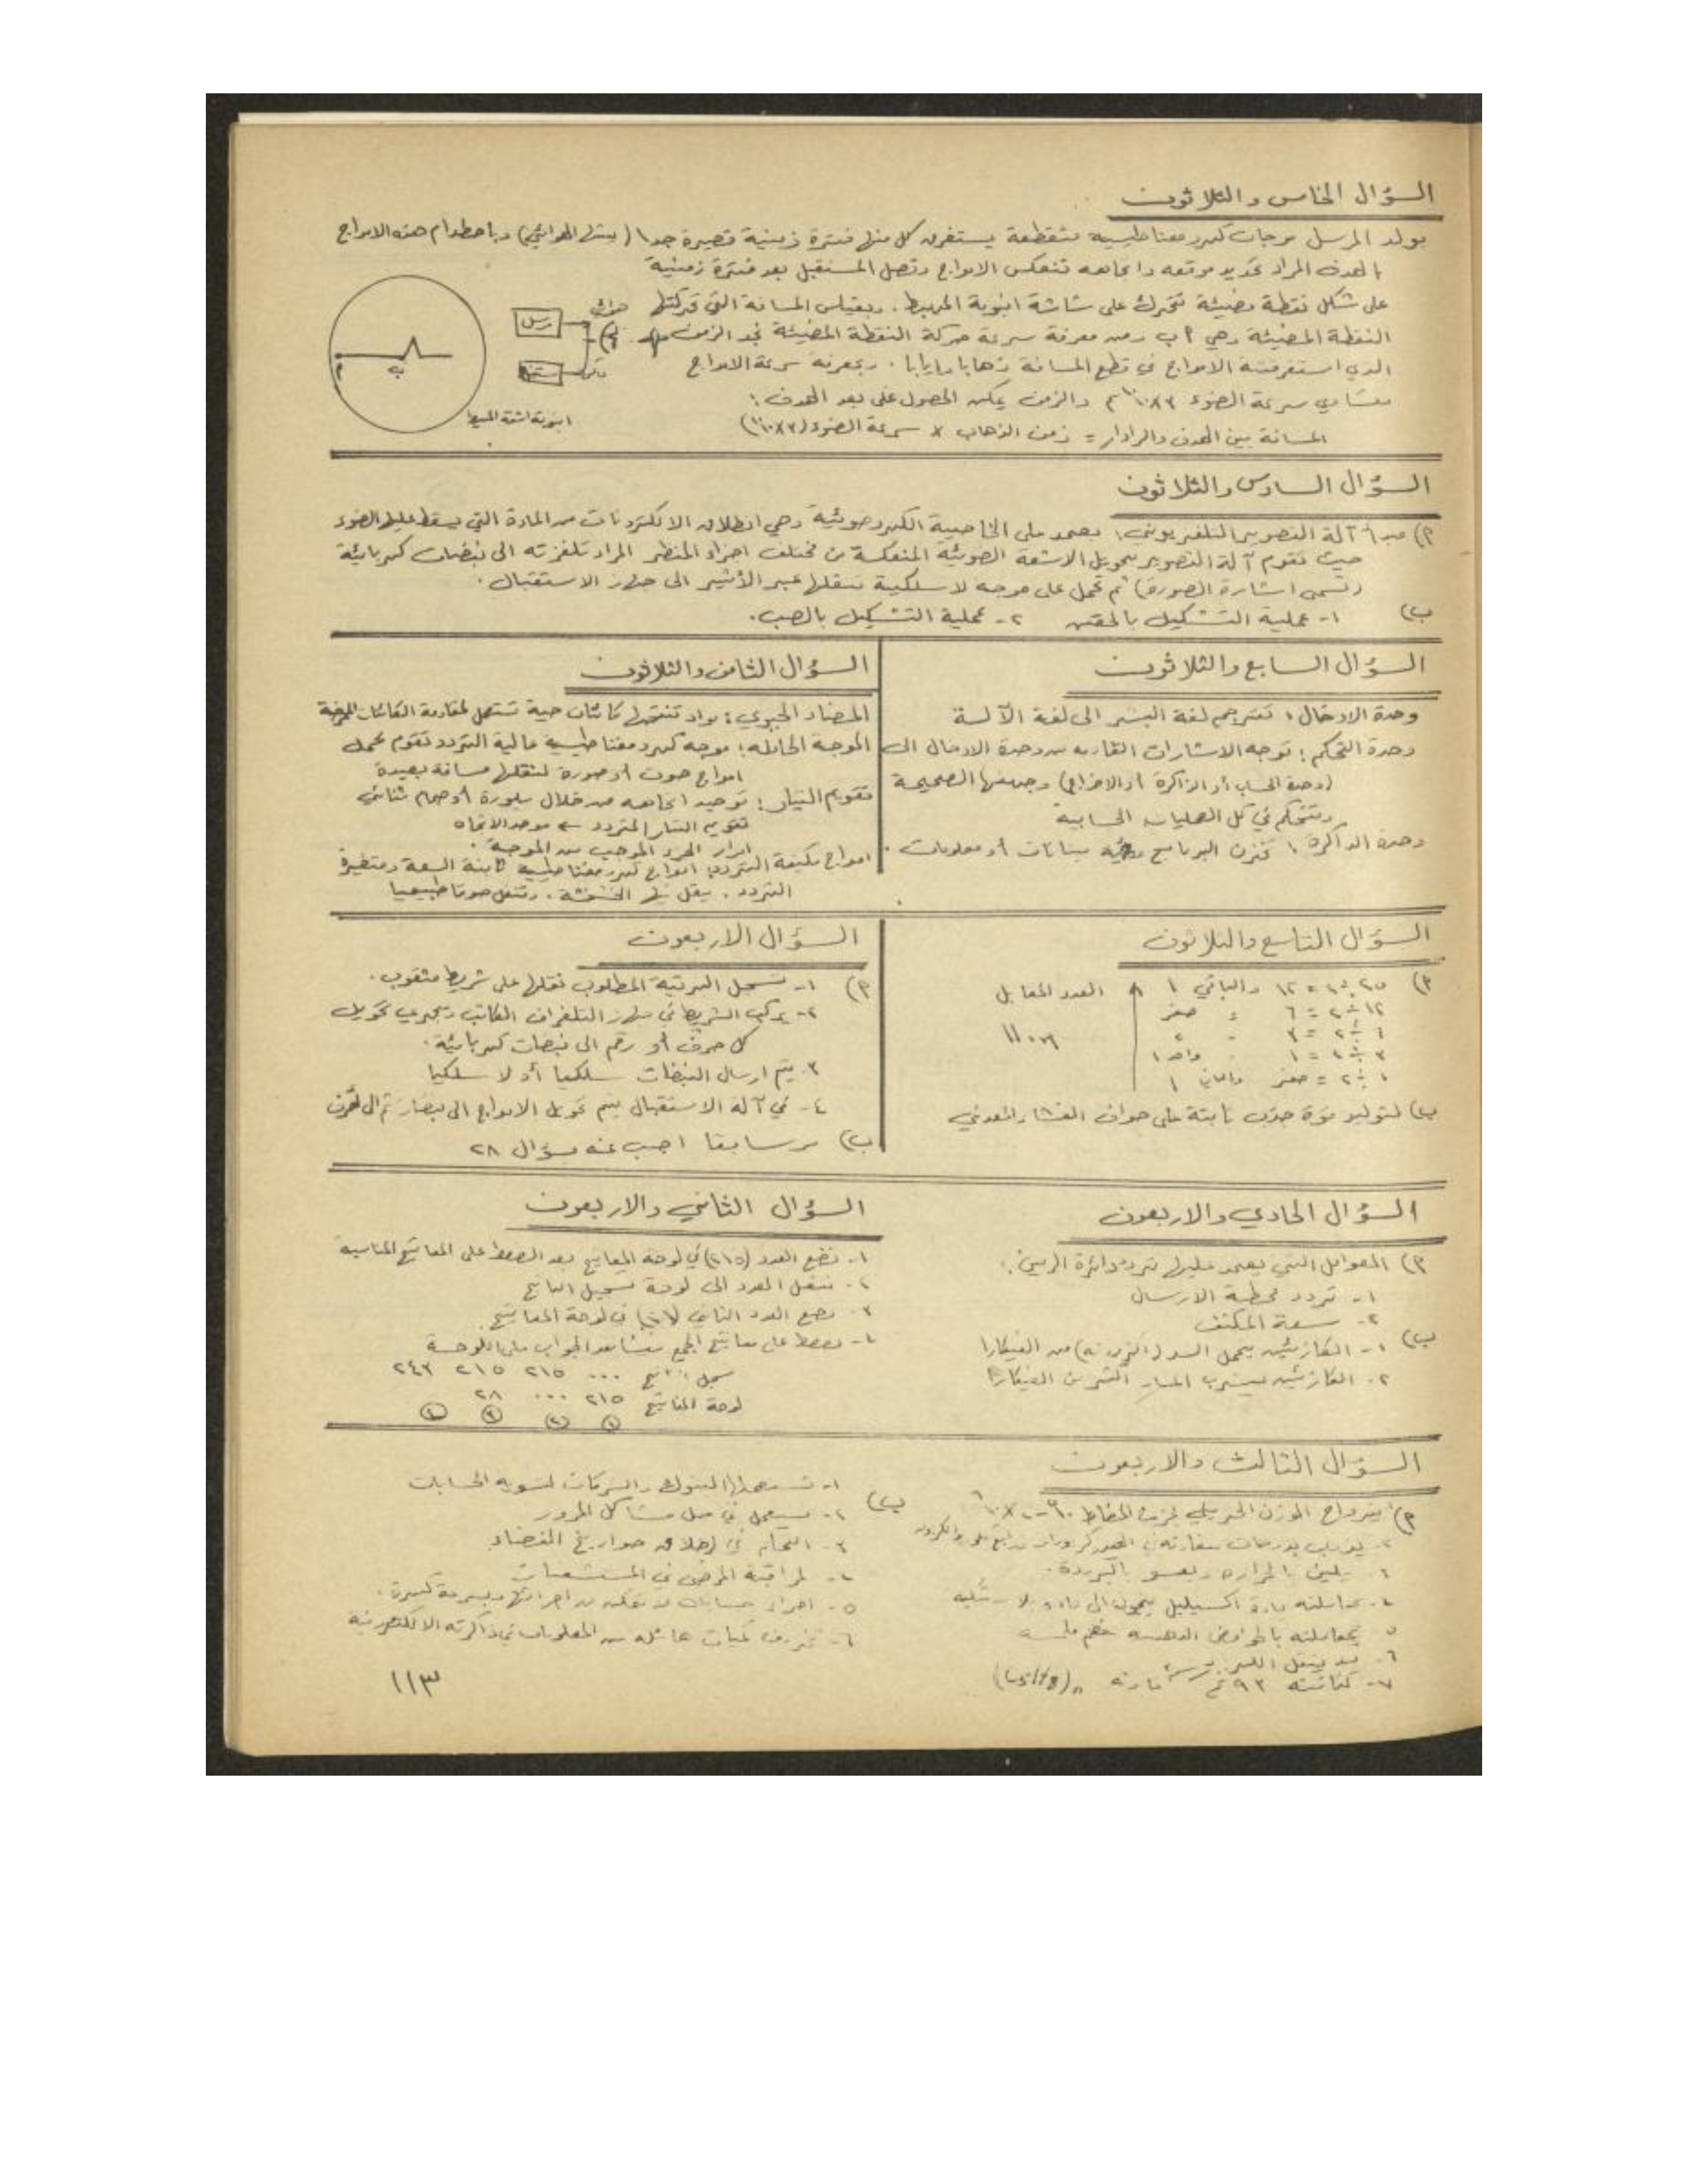 السؤال الخامس والثلاثون
يولد المرسل موجات كهرومغناطيسية متقطعة يستغرق كل منها فترة زمنية قصيرة جدا (يبثها الهوائي) وباصطدام هذه الامواج
بالهدف المراد تحديد موقعه واتجاهه تنعكس الامواج وتصل المستقبل بعد فترة زمنية
على شكل نقطة مضيئة تتحرك على شاشة انبوبة المهبط . وبقياس المسافة التي تحركتها
النقطة المضيئة وهي أ ب ومن معرفة سرعة حركة النقطة المضيئة نجد الزمن
الذي استغرقته الامواج في قطع المسافة ذهابا وايابا . وبمعرفة سرعة الامواج
سرعة الضوء والزمن يمكن الحصول على بعد الهدف :
المسافة بين الهدف والرادار = زمن الذهاب × سرعة الضوء
هوائي
مرسل
أ
ب
انبوبة اشعة المهبط
السؤال السادس والثلاثون
أ) مبدأ آلة التصوير التلفزيوني : يعتمد على الخاصية الكهروضوئية وهي انطلاق الالكترونات من المادة التي يسقط عليها الضوء
حيث تقوم آلة التصوير بتحويل الاشعة الضوئية المنعكسة من مختلف اجزاء المنظر المراد تلفزته الى نبضات كهربائية
(تسمى اشارة الصورة) ثم تحمل على موجه لاسلكية تنقلها عبر الأثير الى جهاز الاستقبال .
ب) ١- عملية التشكيل بالحقن ٢- عملية التشكيل بالصب .
السؤال السابع والثلاثون
وحدة الادخال : تترجم لغة البشر الى لغة الآلة
وحدة التحكم : توجه الاشارات القادمه من وحدة الادخال الى
(وحدة الحساب أو الذاكرة أو الاخراج) وجهتها الصحيحة
وتتحكم في كل العمليات الحسابية
وحدة الذاكرة : تخزن البرنامج بيانات أو معلومات .
السؤال الثامن والثلاثون
المضاد الحيوي : مواد تنتجها كائنات حية تستعمل لمقاومة الكائنات الممرضة
الموجة الحامله : موجه كهرومغناطيسية عالية التردد تقوم بحمل
امواج صوت أو صورة لنقلها مسافة بعيدة
تقويم التيار : توحيد اتجاهه من خلال بلورة أو صمام ثنائي
تقويم التيار المتردد ← موحد الاتجاه
امرار الجزء الموجب من الموجة .
امواج مكيفة التردد : امواج كهرومغناطيسية ثابتة السعة ومتغيرة
التردد . يقل الخشخشة . وتنقل صوتا طبيعيا
السؤال التاسع والثلاثون
أ) ٢٥ ÷ ٢ = ١٢ والباقي ١ العدد المقابل
١٢ ÷ ٢ = ٦ = صفر
٦ ÷ ٢ = ٣ ١١٠٠١
٣ ÷ ٢ = ١ واحد ١
١ ÷ ٢ = صفر والباقي ١
ب) لتوليد قوة جذب ثابتة على حواف الغشاء المعدني
السؤال الاربعون
أ) ١- تسجل البرقية المطلوب نقلها على شريط مثقوب .
٢- يركب الشريط في جهاز التلغراف الكاتب ويجري تحويل
كل حرف أو رقم الى نبضات كهربائية .
٣- يتم ارسال النبضات سلكيا أو لا سلكيا
٤- في آلة الاستقبال يتم تحويل الامواج الى نبضات ثم الى
ب) مر سابقا اجب عنه سؤال ٢٨
السؤال الحادي والاربعون
أ) العوامل التي يعتمد عليها تردد دائرة الرنين :
١- تردد محطة الارسال
٢- سعة المكثف
ب) ١- الكازئين يحمل من الفيكارا
٢- الكازئين الفيكارا
السؤال الثاني والاربعون
١- نضع العدد (٢١٥) في لوحة المفاتيح بعد الضغط على المفاتيح المناسبة
٢- ننقل العدد الى لوحة تسجيل الناتج
٣- نضع العدد الثاني (٢٨) في لوحة المفاتيح
٤- نضغط على مفاتيح الجمع فيشاهد الجواب على اللوحة
سجل الناتج ٠٠٠ ٢١٥ ٢١٥ ٢٤٣
لوحة المفاتيح ٢١٥ ٠٠٠ ٢٨
١ ٢ ٣ ٤
السؤال الثالث والاربعون
أ) يتراوح الوزن الجزيئي لجزيء المطاط
٣- يلين بالحرارة ويقسو بالبرودة .
٧- كثافته
ب) ١- تستعملها البنوك والشركات لتسوية الحسابات
٢- يستعمل في حل مشاكل المرور
٣- التحكم في اطلاق صواريخ الفضاء
٤- لمراقبة المرضى في المستشفيات
٥- اجراء حسابات وبسرعة كبيرة .
٦- تخزين كميات هائله من المعلومات في ذاكرته الالكترونية
١١٣